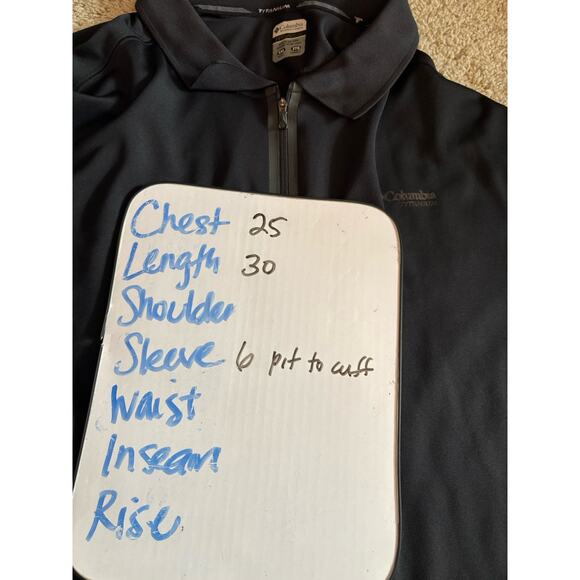 TITANIUM
Columbia
Columbia
TITANIUM
Chest 25
Length 30
Shoulder
Sleeve 6 pit to cuff
Waist
Inseam
Rise